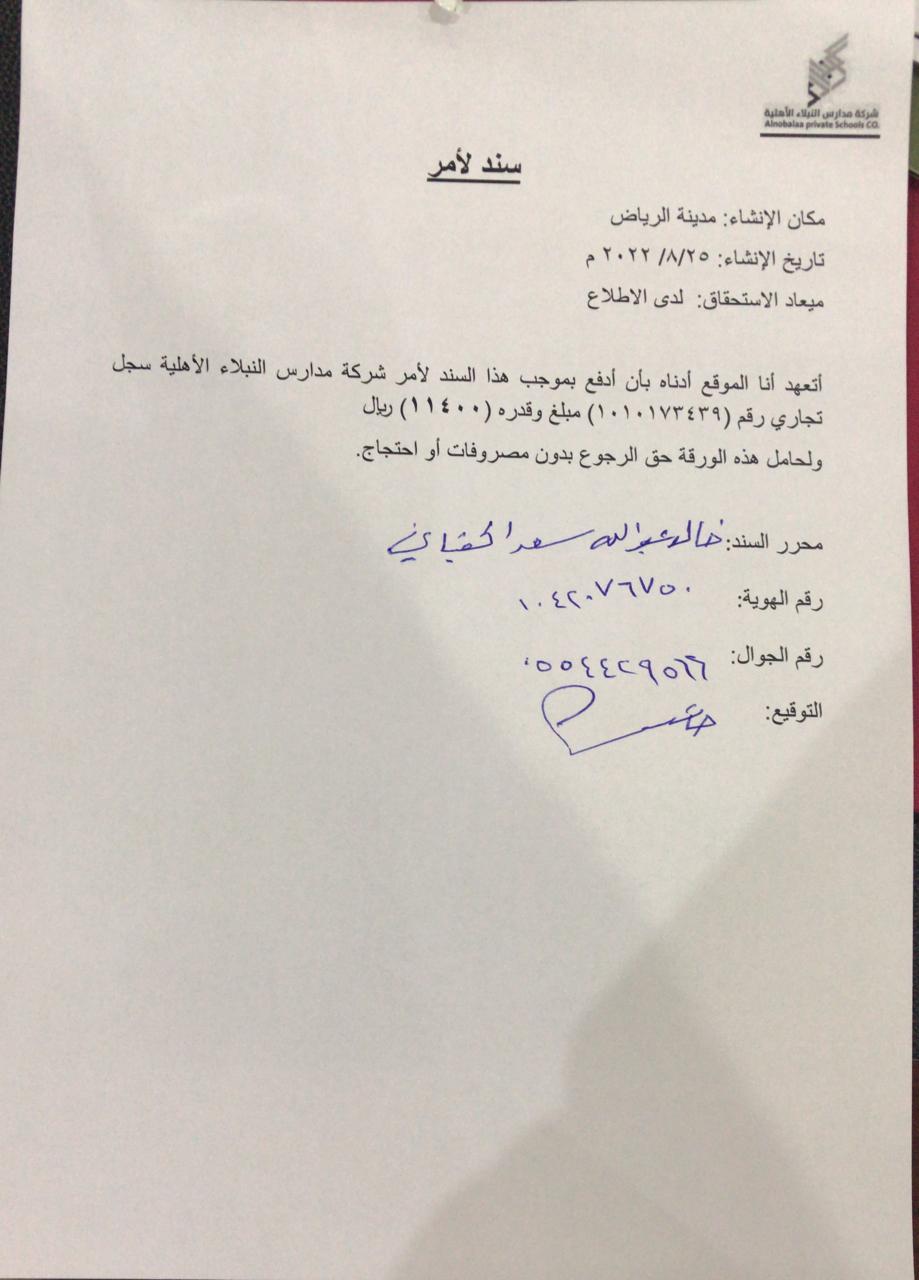 شركة مدارس النبلاء الأهلية
Alnobalaa private Schools CO.
سند لأمر
مكان الإنشاء: مدينة الرياض
تاريخ الإنشاء: ٢٥/٨/ ٢٠٢٢ م
ميعاد الاستحقاق: لدى الاطلاع
أتعهد أنا الموقع أدناه بأن أدفع بموجب هذا السند لأمر شركة مدارس النبلاء الأهلية سجل
تجاري رقم (١٠١٠١٧٣٤٣٩) مبلغ وقدره (١١٤٠٠) ريال
ولحامل هذه الورقة حق الرجوع بدون مصروفات أو احتجاج.
محرر السند: خالد عبدالله سعد
رقم الهوية: ١٠٤٢٠٧٦٧٥٠
رقم الجوال: ٠٥٥٤٤٢٩٥٦٦
التوقيع: